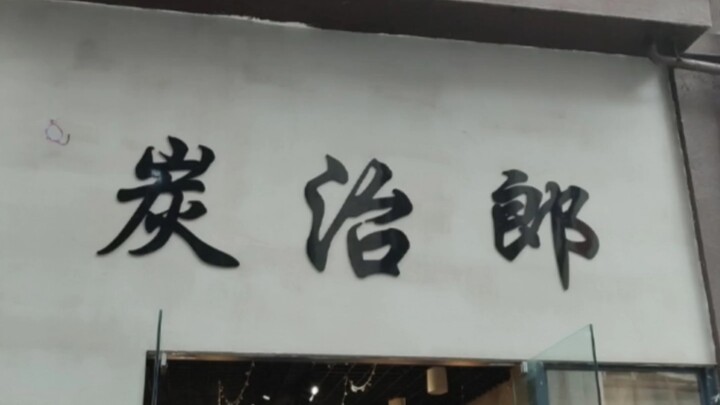 炭治郎